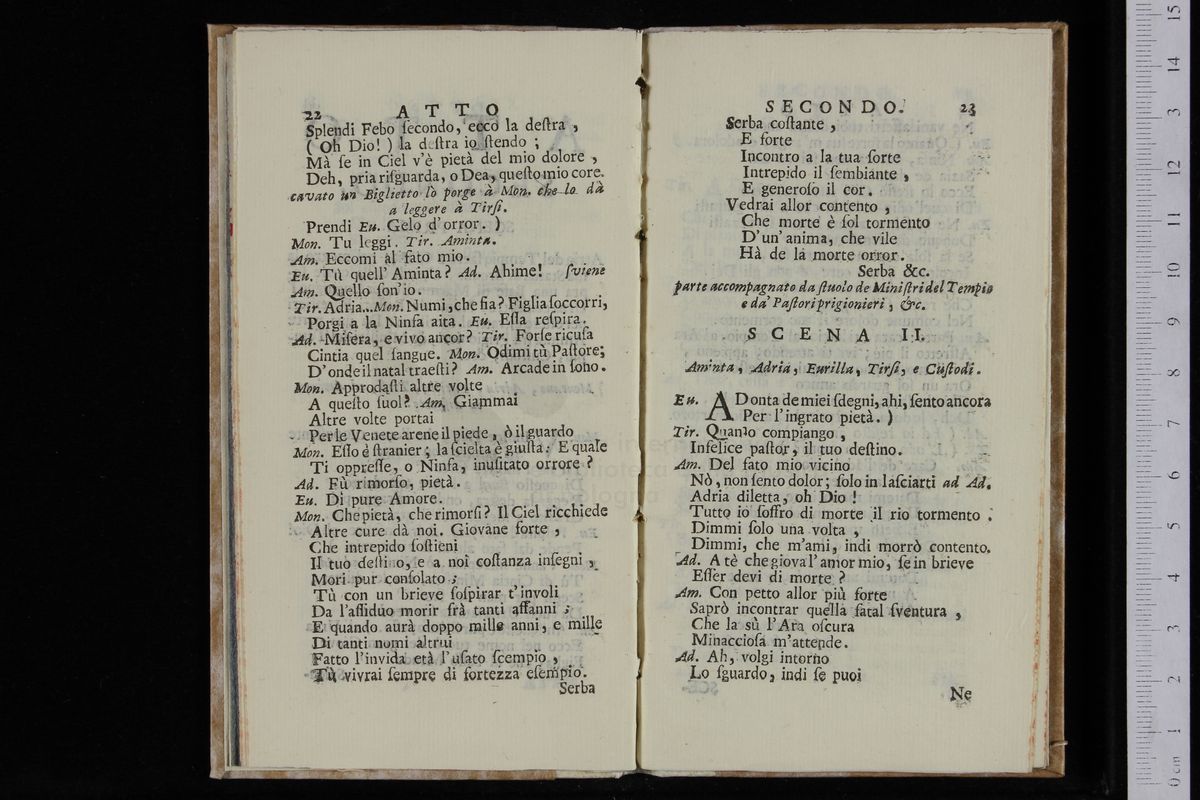 22 ATTO
Splendi Febo ſecondo, ecco la deſtra ,
( Oh Dio! ) la deſtra io ſtendo ;
Mà ſe in Ciel v'è pietà del mio dolore ,
Deh, pria riſguarda, o Dea, queſto mio core.
cavato un Biglietto lo porge à Mon. che lo dà
a leggere à Tirſi.
Prendi Eu. Gelo d'orror. )
Mon. Tu leggi. Tir. Aminta.
Am. Eccomi al fato mio.
Eu. Tù quell' Aminta? Ad. Ahime! ſviene
Am. Quello ſon'io.
Tir. Adria... Mon. Numi, che fia? Figlia ſoccorri,
Porgi a la Ninfa aita. Eu. Eſſa reſpira.
Ad. Miſera, e vivo ancor? Tir. Forſe ricuſa
Cintia quel ſangue. Mon. Odimi tù Paſtore;
D'onde il natal traeſti? Am. Arcade in ſono.
Mon. Approdaſti altre volte
A queſto ſuol? Am. Giammai
Altre volte portai
Per le Venete arene il piede, ò il guardo
Mon. Eſſo è ſtranier; la ſcielta è giuſta: E quale
Ti oppreſſe, o Ninfa, inuſitato orrore ?
Ad. Fù rimorſo, pietà.
Eu. Di pure Amore.
Mon. Che pietà, che rimorſi? Il Ciel ricchiede
Altre cure dà noi. Giovane forte ,
Che intrepido ſoſtieni
Il tuo deſtino, e a noi coſtanza inſegni ,
Mori pur conſolato ;
Tù con un brieve ſoſpirar t'involi
Da l'aſſiduo morir frà tanti affanni ;
E quando aurà doppo mille anni, e mille
Di tanti nomi altrui
Fatto l'invida età l'uſato ſcempio ,
Tù vivrai ſempre di fortezza eſempio.
Serba
SECONDO. 23
Serba coſtante ,
E forte
Incontro a la tua ſorte
Intrepido il ſembiante ,
E generoſo il cor.
Vedrai allor contento ,
Che morte è ſol tormento
D'un' anima, che vile
Hà de la morte orror.
Serba &c.
parte accompagnato da ſtuolo de Miniſtri del Tempio
e da' Paſtori prigionieri , &c.
SCENA II.
Aminta, Adria, Eurilla, Tirſi, e Cuſtodi.
Eu. ADonta de miei ſdegni, ahi, ſento ancora
Per l'ingrato pietà. )
Tir. Quanto compiango ,
Infelice paſtor, il tuo deſtino.
Am. Del fato mio vicino
Nò, non ſento dolor; ſolo in laſciarti ad Ad.
Adria diletta, oh Dio !
Tutto io ſoffro di morte il rio tormento .
Dimmi ſolo una volta ,
Dimmi, che m'ami, indi morrò contento.
Ad. A tè che giova l'amor mio, ſe in brieve
Eſſer devi di morte ?
Am. Con petto allor più forte
Saprò incontrar quella fatal ſventura ,
Che la sù l'Ara oſcura
Minaccioſa m'attende.
Ad. Ah, volgi intorno
Lo ſguardo, indi ſe puoi
Ne